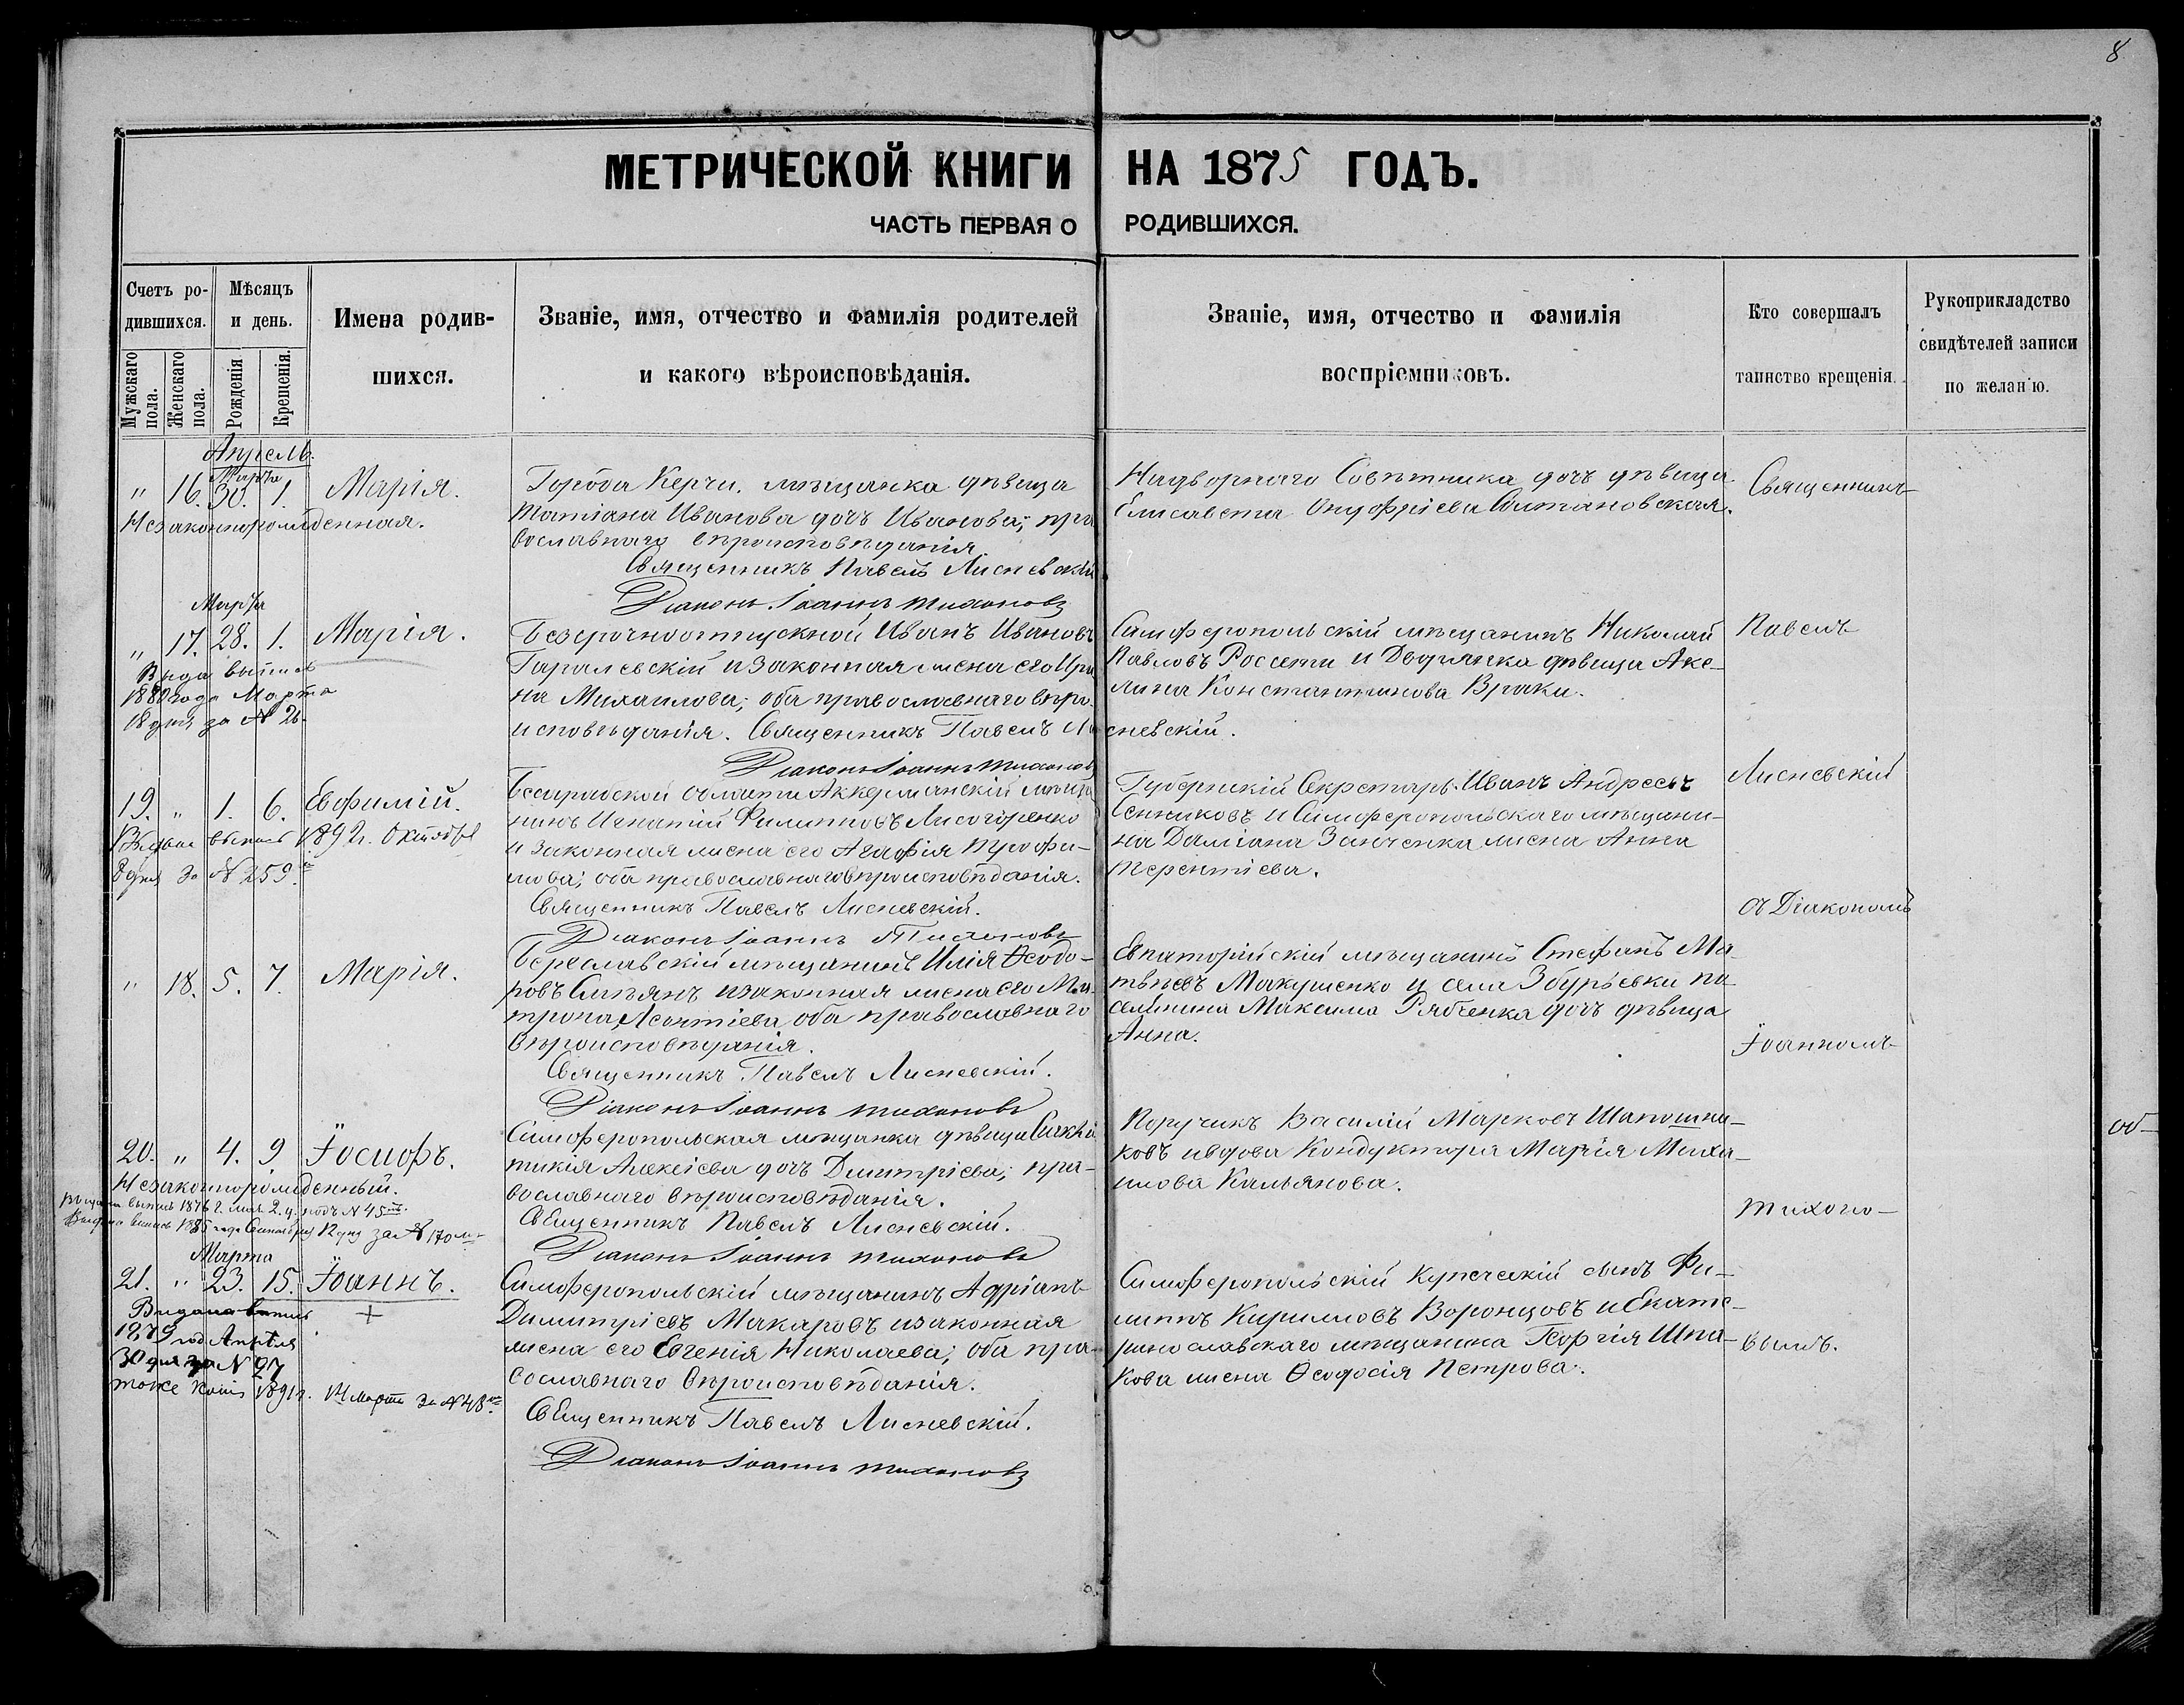 8
МЕТРИЧЕСКОЙ КНИГИ НА 1875 ГОДЪ.
ЧАСТЬ ПЕРВАЯ О РОДИВШИХСЯ.
Счетъ ро-
дившихся.
Мужскаго пола.
Женскаго пола.
Мѣсяцъ
и день.
Рожденія
Крещенія.
Имена родив-
шихся.
Званіе, имя, отчество и фамилія родителей
и какого вѣроисповѣданія.
Званіе, имя, отчество и фамилія
воспріемниковъ.
Кто совершалъ
таинство крещенія.
Рукоприкладство
свидѣтелей записи
по желанію.
Апрель.
Марта
" 16. 30. 1. Марія.
Незаконнорожденная.
Города Керчи, мѣщанка дѣвица
Татіана Иванова дочь Иванова; пра
вославнаго вѣроисповѣданія.
Священникъ Павелъ Лисневскій
Діаконъ Іоаннъ Тихоновъ
Надворнаго Совѣтника дочь дѣвица
Елисавета Онуфріева
Священникъ
Марта
" 17. 28. 1. Марія.
Выда выпись
1880 года Марта
18 дня за № 26.
Безсрочноотпускной Иванъ Ивановъ
Гаралевскій и законная жена его Ири
на Михаилова; оба православнаго вѣро-
исповѣданія. Священникъ Павелъ Ли
сневскій.
Діаконъ Іоаннъ Тихоновъ
Симферопольскій мѣщанинъ Николай
Павловъ Россети и Дворянка дѣвица Аке-
лина Константинова Враки.
Павелъ
19. " 1. 6. Евфимій.
Выдана выпись 1892 г. Октября
8 дня за № 259.
Бессарабской области Аккерманскій мѣща
нинъ Игнатій Филипповъ Лисогоренко
и законная жена его Агафія Трофи-
мова; оба православнаго вѣроисповѣданія.
Священникъ Павелъ Лисневскій.
Діаконъ Іоаннъ Тихоновъ
Губернскій Секретарь Иванъ Андреевъ
Сенниковъ и Симферопольскаго мѣщани-
на Даміана Заиченка жена Анна
Терентіева.
Лисневскій
съ Діакономъ
" 18. 5. 7. Марія.
Береславскій мѣщанинъ Илія Ѳеодо-
ровъ и законная жена его Ма-
трона Леонтіева оба православнаго
вѣроисповѣданія.
Священникъ Павелъ Лисневскій.
Діаконъ Іоаннъ Тихоновъ
Евпаторійскій мѣщанинъ Стефанъ Ма-
твѣевъ Макушенко и села Збурьевки по-
селянина Максима Рябченка дочь дѣвица
Анна.
Іоанномъ
20. " 4. 9. Іосифъ.
Незаконнорожденный.
выпись 1876 г. 2 д. подъ № 45
Выдана выпись 1885 года Сентября 12 дня за № 170
Симферопольская мѣщанка дѣвица Синкли
тикія Алексіева дочь Димитріева; пра-
вославнаго вѣроисповѣданія.
Священникъ Павелъ Лисневскій.
Діаконъ Іоаннъ Тихоновъ
Поручикъ Василій Марковъ Шапошни-
ковъ и вдова Кондуктора Марія Миха-
илова Кальянова.
Тихоно-
об-
Марта
21. " 23. 15. Іоаннъ.
+
Выдана выпись
1879 год Апрѣля
30 дня за № 97
тоже 1891 г. Марта за № 48
Симферопольскій мѣщанинъ Адріанъ
Димитріевъ Макаровъ и законная
жена его Евгенія Николаева; оба пра-
вославнаго вѣроисповѣданія.
Священникъ Павелъ Лисневскій.
Діаконъ Іоаннъ Тихоновъ
Симферопольскій купеческій сынъ Фи-
липпъ Кирилловъ Воронцовъ и Екате-
ринославскаго мѣщанина Георгія Шпа-
кова жена Ѳеодосія Петрова.
вымъ.